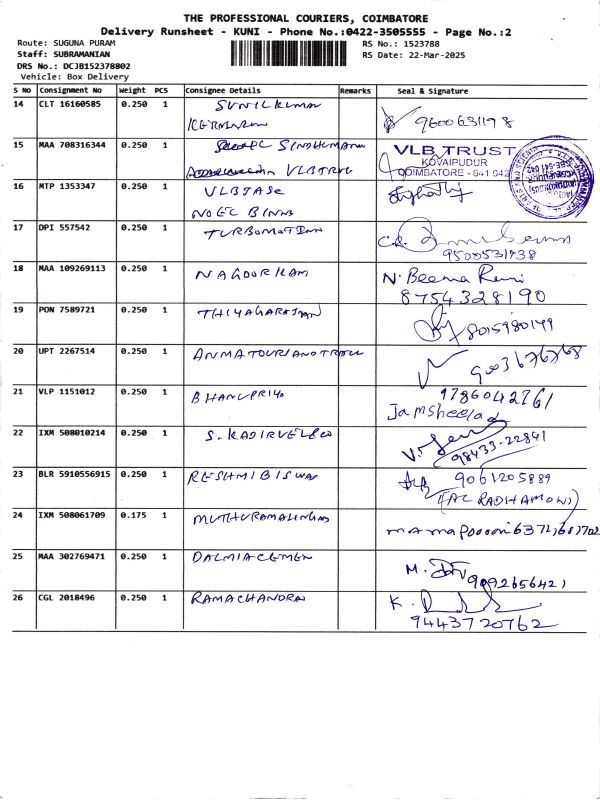 THE PROFESSIONAL COURIERS, COIMBATORE
Delivery Runsheet - KUNI - Phone No.:0422-3505555 - Page No.:2
Route: SUGUNA PURAM
Staff: SUBRAMANIAN
DRS No.: DCJB152378802
Vehicle: Box Delivery
RS No.: 1523788
RS Date: 22-Mar-2025
S No Consignment No Weight PCS Consignee Details Remarks Seal & Signature
14 CLT 16160585 0.250 1 SUNILKUMAR 9600631198
15 MAA 708316344 0.250 1 SINDHUMANI VLB TRUST
KOVAIPUDUR
COIMBATORE - 641 042
VLBTRU
16 MTP 1353347 0.250 1 VLBJASC
NOEL BINNS
17 DPI 557542 0.250 1 TURBOMOTINN
9500531938
18 MAA 109269113 0.250 1 NAGOORKANI N. Beema
8754328190
19 PON 7589721 0.250 1 THIYAGARAJAN 8015980149
20 UPT 2267514 0.250 1 9003676768
21 VLP 1151012 0.250 1 BHANUPRIYA 9786042761
Jamsheelad
22 IXM 508010214 0.250 1 S. KADIRVELU 98433-22841
23 BLR 5910556915 0.250 1 RESHMIBISWAS 9061205889
(AC RADHAMONI)
24 IXM 508061709 0.175 1 MUTHURAMALINGAM
25 MAA 302769471 0.250 1 DALMIACEMEN M. 9092656421
26 CGL 2018496 0.250 1 RAMACHANDRAN K.
9443720762